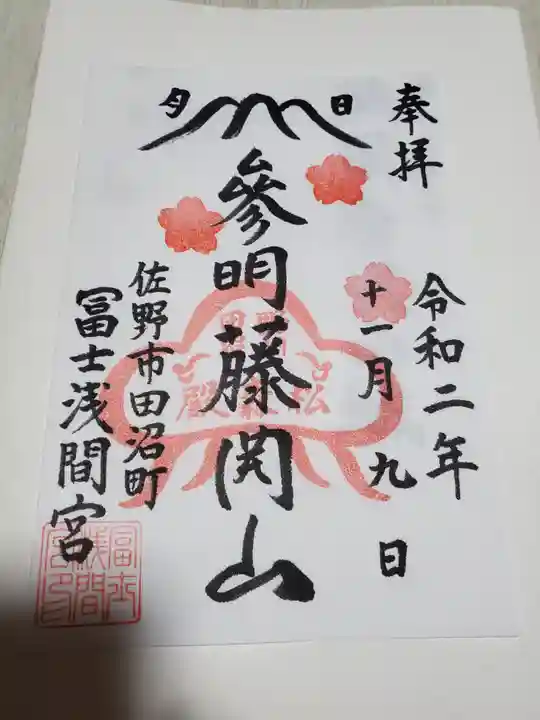 奉拝
令和二年
十一月九日
日
夕
參明藤関山
佐野市田沼町
冨士浅間宮
冨士
浅間
宮印